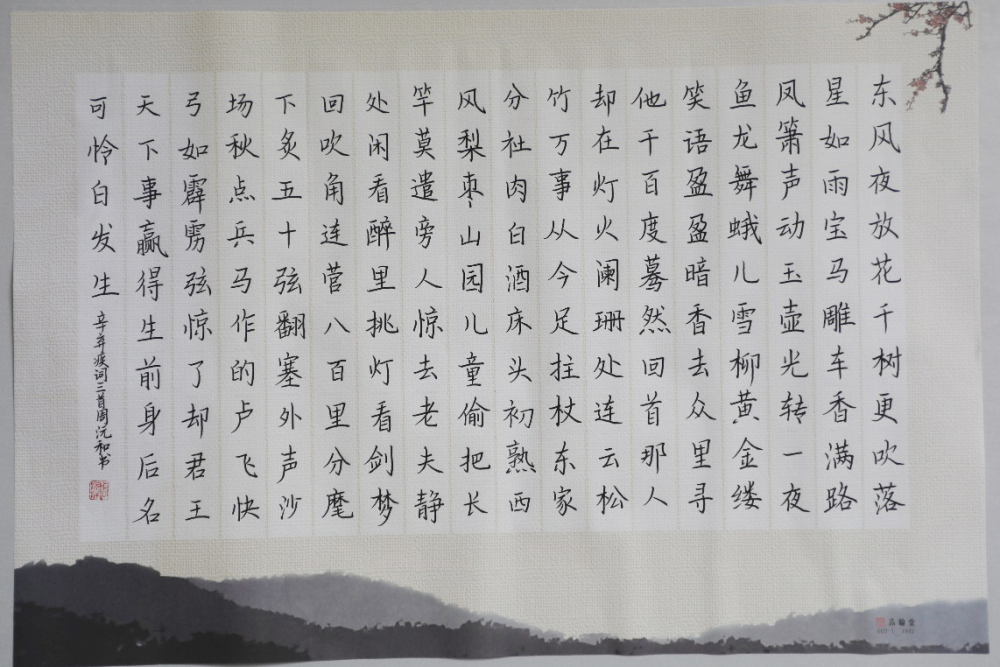 东风夜放花千树更吹落
星如雨宝马雕车香满路
凤箫声动玉壶光转一夜
鱼龙舞蛾儿雪柳黄金缕
笑语盈盈暗香去众里寻
他千百度蓦然回首那人
却在灯火阑珊处连云松
竹万事从今足拄杖东家
分社肉白酒床头初熟西
风梨枣山园儿童偷把长
竿莫遣旁人惊去老夫静
处闲看醉里挑灯看剑梦
回吹角连营八百里分麾
下炙五十弦翻塞外声沙
场秋点兵马作的卢飞快
弓如霹雳弦惊了却君王
天下事赢得生前身后名
可怜白发生
辛弃疾词三首周沅和书
品翰堂